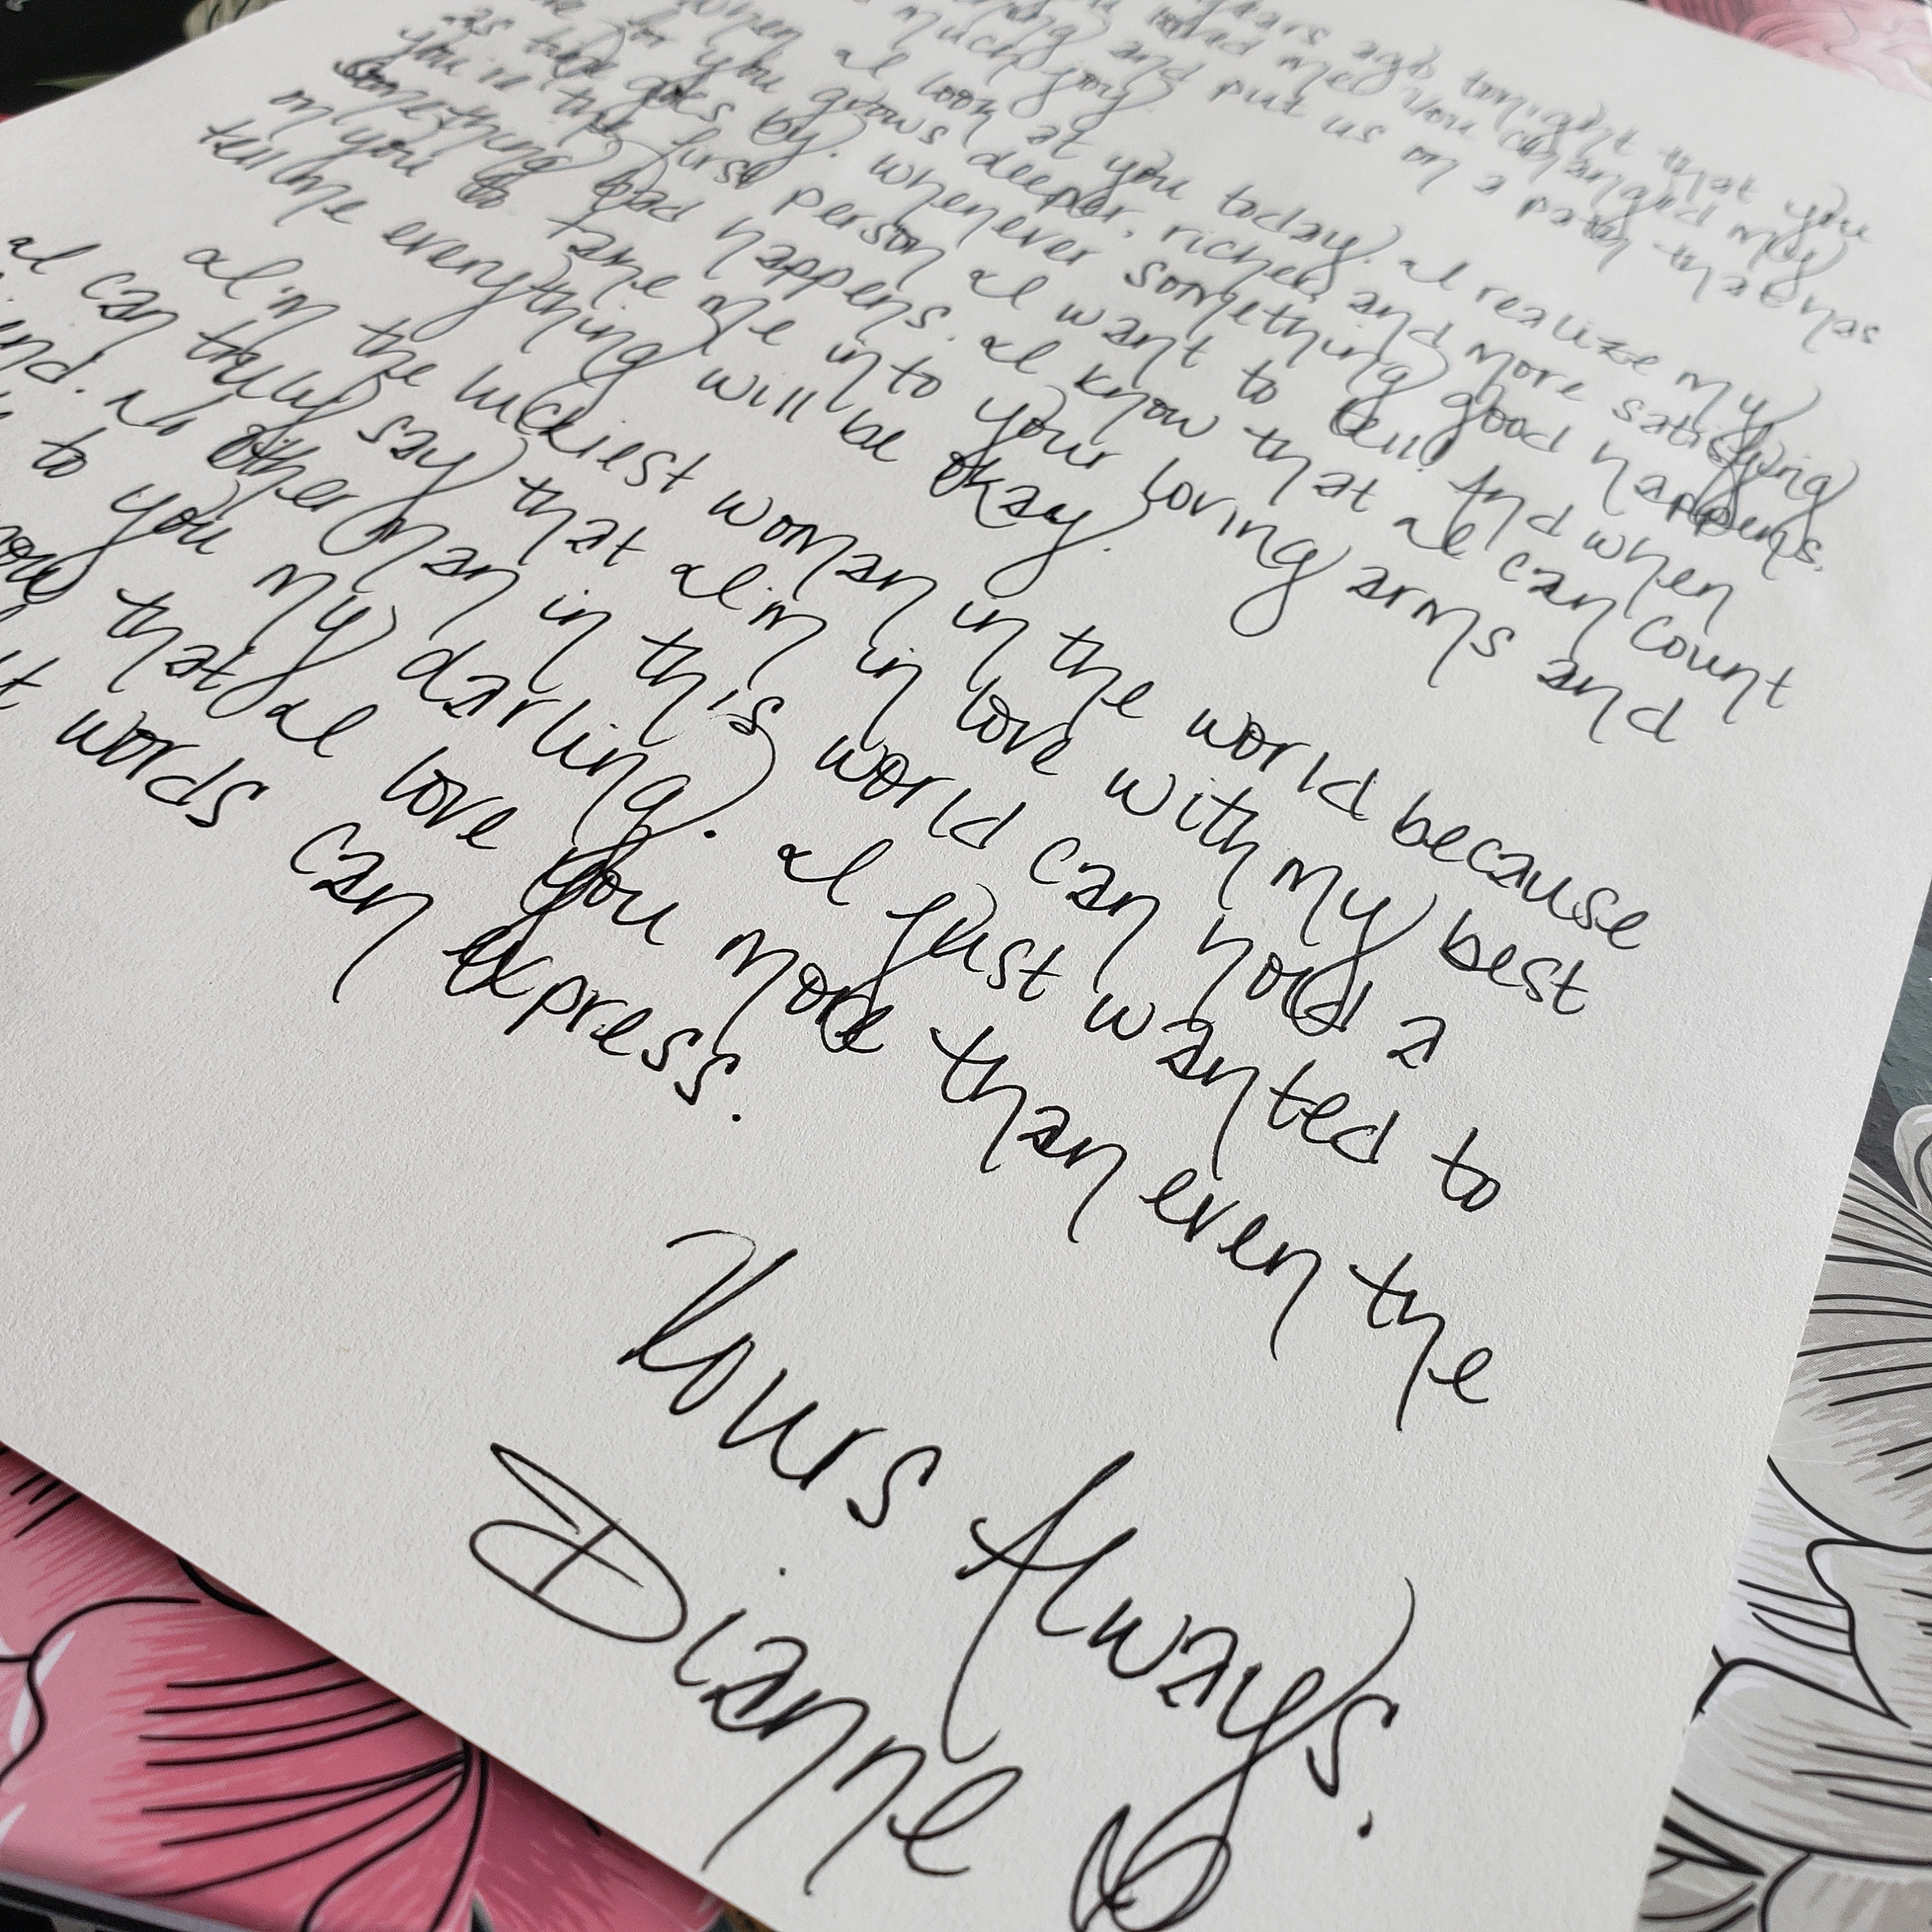 years ago tonight that you
me. You changed my
and put us on a path that has
much joy.
When I look at you today, I realize my
for you grows deeper, richer, and more satisfying
as time goes by. Whenever something good happens,
you're the first person I want to tell. And when
something bad happens, I know that I can count
on you to take me into your loving arms and
tell me everything will be okay.
I'm the luckiest woman in the world because
I can truly say that I'm in love with my best
end. No other man in this world can hold a
to you my darling. I just wanted to
you that I love you more than even the
t words can express.
Yours Always,
Dianne